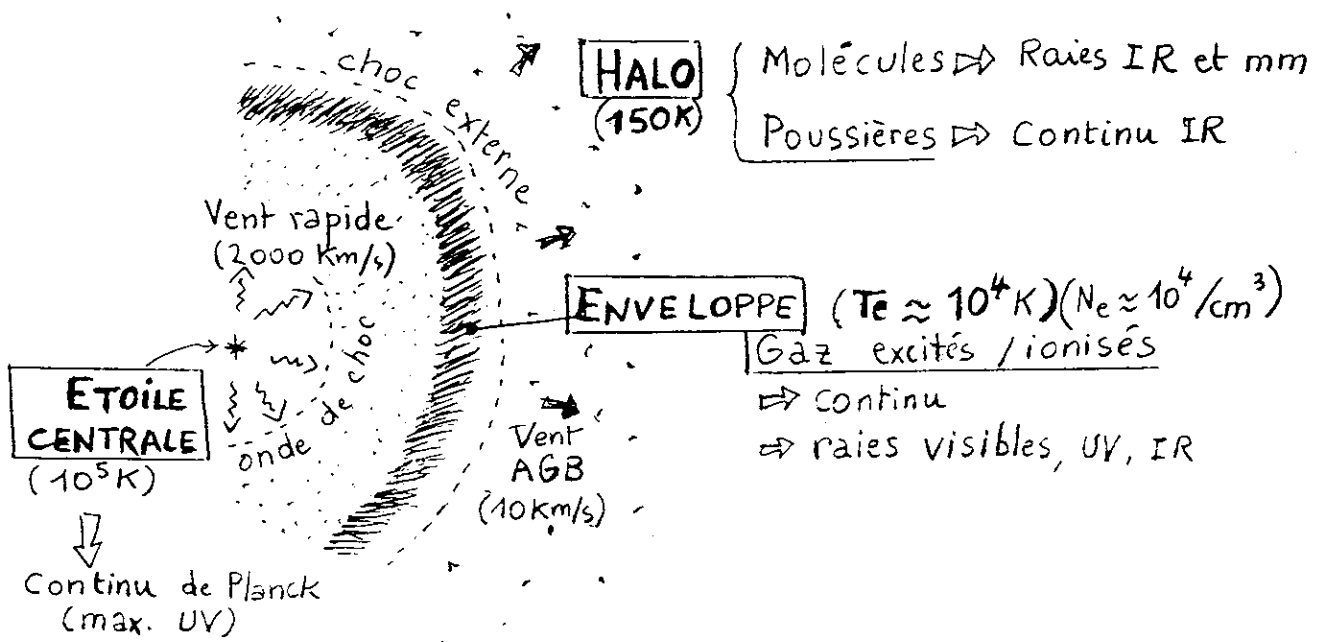 choc
externe
HALO
(150K)
Molécules ⇨ Raies IR et mm
Poussières ⇨ Continu IR
Vent rapide
(2000 Km/s)
onde de choc
ENVELOPPE (Te ≈ 10⁴K)(Ne ≈ 10⁴/cm³)
Gaz excités / ionisés
⇨ continu
⇨ raies visibles, UV, IR
ETOILE
CENTRALE
(10⁵K)
Vent
AGB
(10Km/s)
Continu de Planck
(max. UV)